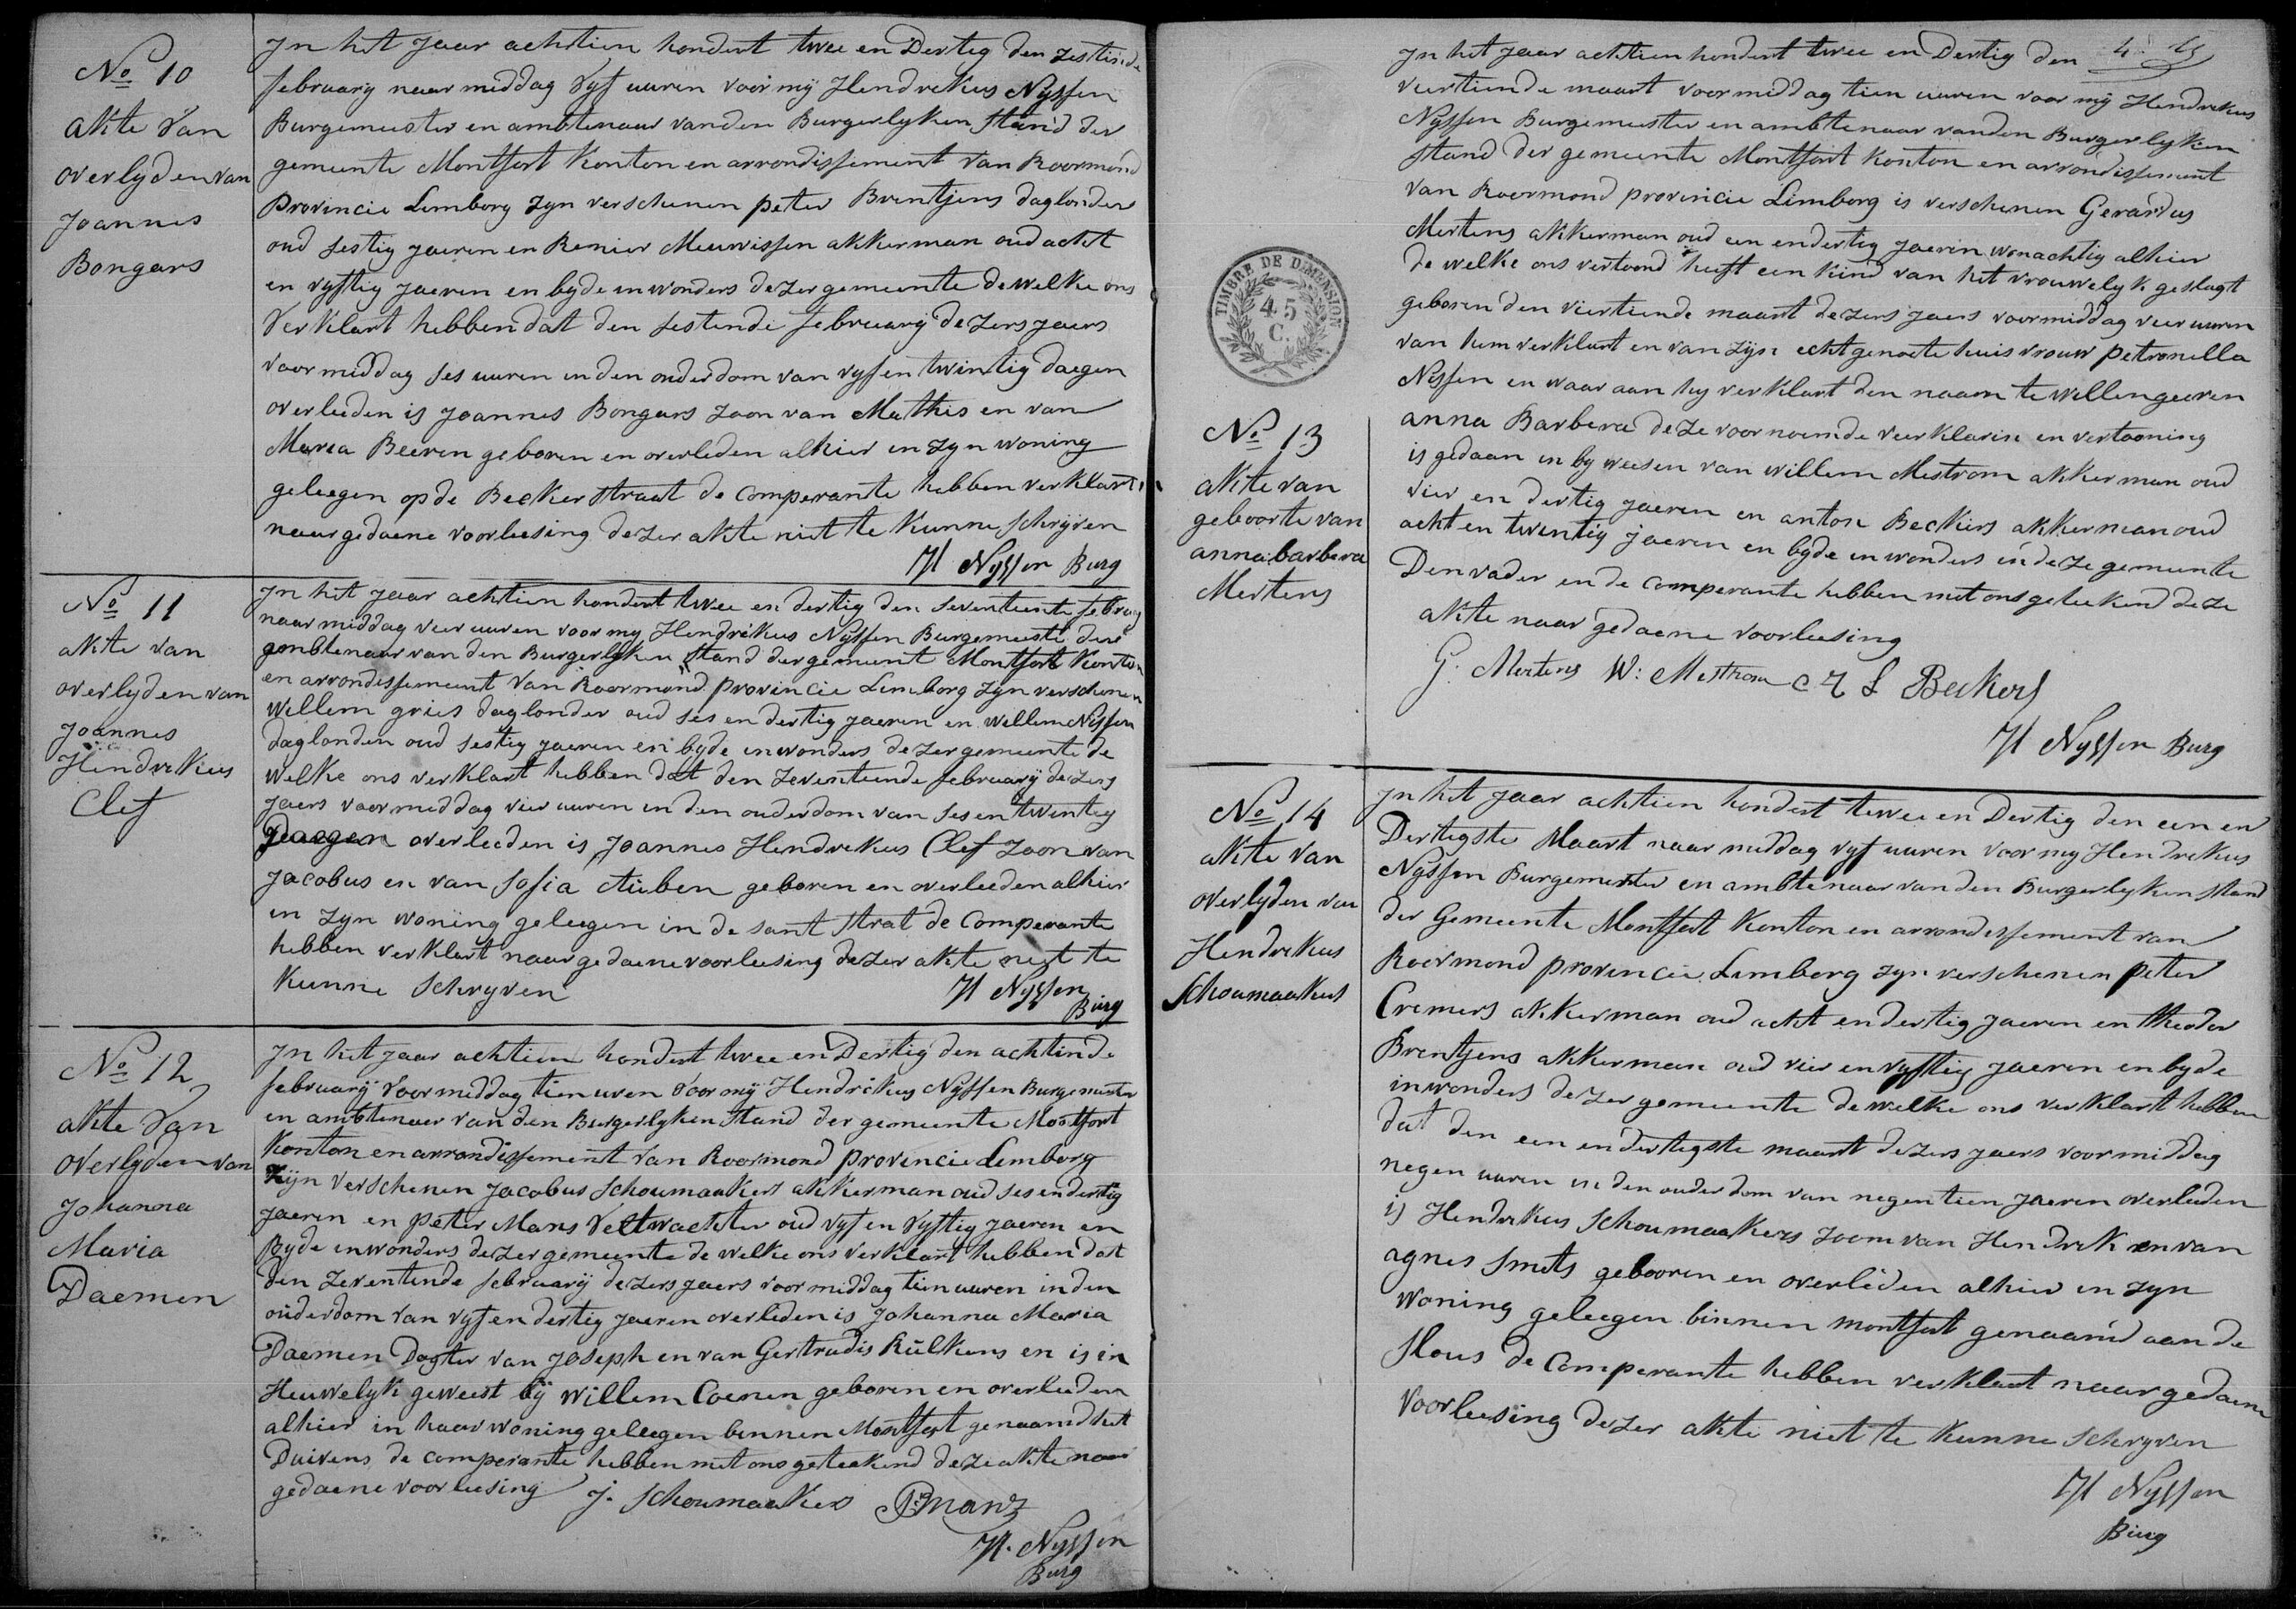 No 10
akte van
overlyden van
Joannes
Bongars
Jn het Jaar achtien hondert twee en Dertig den zestiende
february naar middag vyf uuren voor mij Hendrekus Nyssen
Burgemeester en ambtenaar vanden Burgerlyken stand der
gemeente Montfort Konton en arrondissement van Roormond
Provincie Limborg zyn verschenen peter Brentjens daglonder
oud sestig jaeren en Renier Meuwissen akkerman oud acht
en vyftig jaeren en byde inwonders dezer gemeente dewelke ons
verklart hebben dat den sestende february dezers jaers
voormiddag ses uuren inden ouderdom van vyfentwintig daegen
overleeden is Joannes Bongars zoon van Mathis en van
Maria Beeren geboren en overleden alhier in zyn woning
geleegen op de Beeker straat de Comperante hebben verklart
naar gedaene voorleesing dezer akte niet te kunne schryven
H Nyssen Burg
No 11
akte van
overlyden van
Joannes
Hendrekus
Clef
Jn het jaar achtien hondert twee en dertig den seventiente febrary
naar middag veer uuren voor my Hendrekus Nyssen Burgemeeste der
ambtenaar van den Burgerlyken stand der gemeent Montfort Konton
en arrondissement van Roormond provincie Limborg zyn verschenen
Willem gries daglonder oud ses en dertig jaeren en willem Nissen
daglonden oud sestig jaeren en byde inwonders dezer gemeente de
welke ons verklart hebben dat den zeventeende february dezers
jaers voormiddag vier uuren in den ouderdom van ses en twentig
daegen overleeden is Joannes Hendrekus Clef zoon van
Jacobus en van Sofia Cuben geboren en overleeden alhier
en zyn woning geleegen in de sant strat de Comperante
hebben verklart naar gedaene voorleesing dezer akte niet te
kunne schryven
H Nyssen
Burg
No 12
akte van
overlyden van
Johanna
Maria
Daemen
Jn het jaar achtien hondert twee en Dertig den achtinde
february voormiddag tien uren voor mij Hendrikus Nyssen Burgemeester
en ambtenaer van den Burgerlyken stand der gemeente Montfort
Konton en arrondissement van Roormond provincie Limborg
zijn verschenen Jacobus Schoumaakers akkerman oud ses en dertig
jaeren en peter Mans veltwachter oud vyf en vyftig jaeren en
Byde inwonders dezer gemeente de welke ons verklart hebben dat
den zeventende february dezers jaers voormiddag tien uuren inden
ouderdom van vyf en dertig jaeren overleden is Johanna Maria
Daemen Dogter van Joseph en van Gertrudis Rulkens en is in
Heuwelyk geweest bij Willem Coenen geboren en overleeden
alhier in haar woning geleegen binnen Montfort genaamd het
Duivens de comperante hebben met ons geteekend deze akte naar
gedaene voorleesing J. Schoumaakers P Manz
H. Nyssen
Burg
4
TIMBRE DE DIMENSION
45
C.
No 13
akte van
geboorte van
anna barbera
Mertens
Jn het jaar achtien hondert twee en Dertig den
viertiende maart voormiddag tien uuren voor mij Hendrekus
Nyssen Burgemeester en ambtenaar vanden Burgerlyken
stand der gemeente Montfort Konton en arrondissement
van Roermond provincie Limborg is verschenen Gerardus
Mertens akkerman oud een endertig jaeren wonachtig alhier
de welke ons vertoond heeft een kind van het vrouwelyk geslagt
geboren den viertiende maart dezers jaers voormiddag veer uuren
van hem verklart en van zijn echtgenoete huisvrouw petronella
Nissen en waar aan hy verklart den naam te willen geeven
anna Barbera deze voornoemde veerklarin en vertooning
is gedaan in by weesen van willem Mestrom akkerman oud
vier en dertig jaeren en anton Beckers akkerman oud
acht en twentig jaeren en byde inwonders in deze gemeente
Den vader en de comperante hebben met ons geteekend deze
akte naar gedaene voorleesing
G. Mertens W: Mestrom Beckers
H Nyssen Burg
No 14
akte van
overlyden van
Hendrekus
Schoumaakers
Jn het jaar achtien hondert twee en Dertig den een en
Dertigste Maart naar middag vyf uuren voor my Hendrekus
Nyssen Burgemester en ambtenaar van den Burgerlyken stand
der Gemeente Montfort Konton en arrondessement van
Roermond provincie Limborg zyn verschenen peter
Cremers akkerman oud acht en dertig jaeren en theodor
Brentjens akkerman oud vier en vyftig jaeren en byde
inwonders dezer gemeente dewelke ons verklart hebben
dat den een en dertegste maart dezers jaers voormiddag
negen uuren in den ouderdom van negentien jaeren overleeden
is Hendrekus Schoumaakers zoom van Hendrek en van
agnes Smets gebooren en overleden alhier in zyn
Woning geleegen binnen montfort genaamd aan de
slous de Comperante hebben verklart naar gedaene
voorleesing dezer akte niet te kunne schryven
H Nyssen
Burg